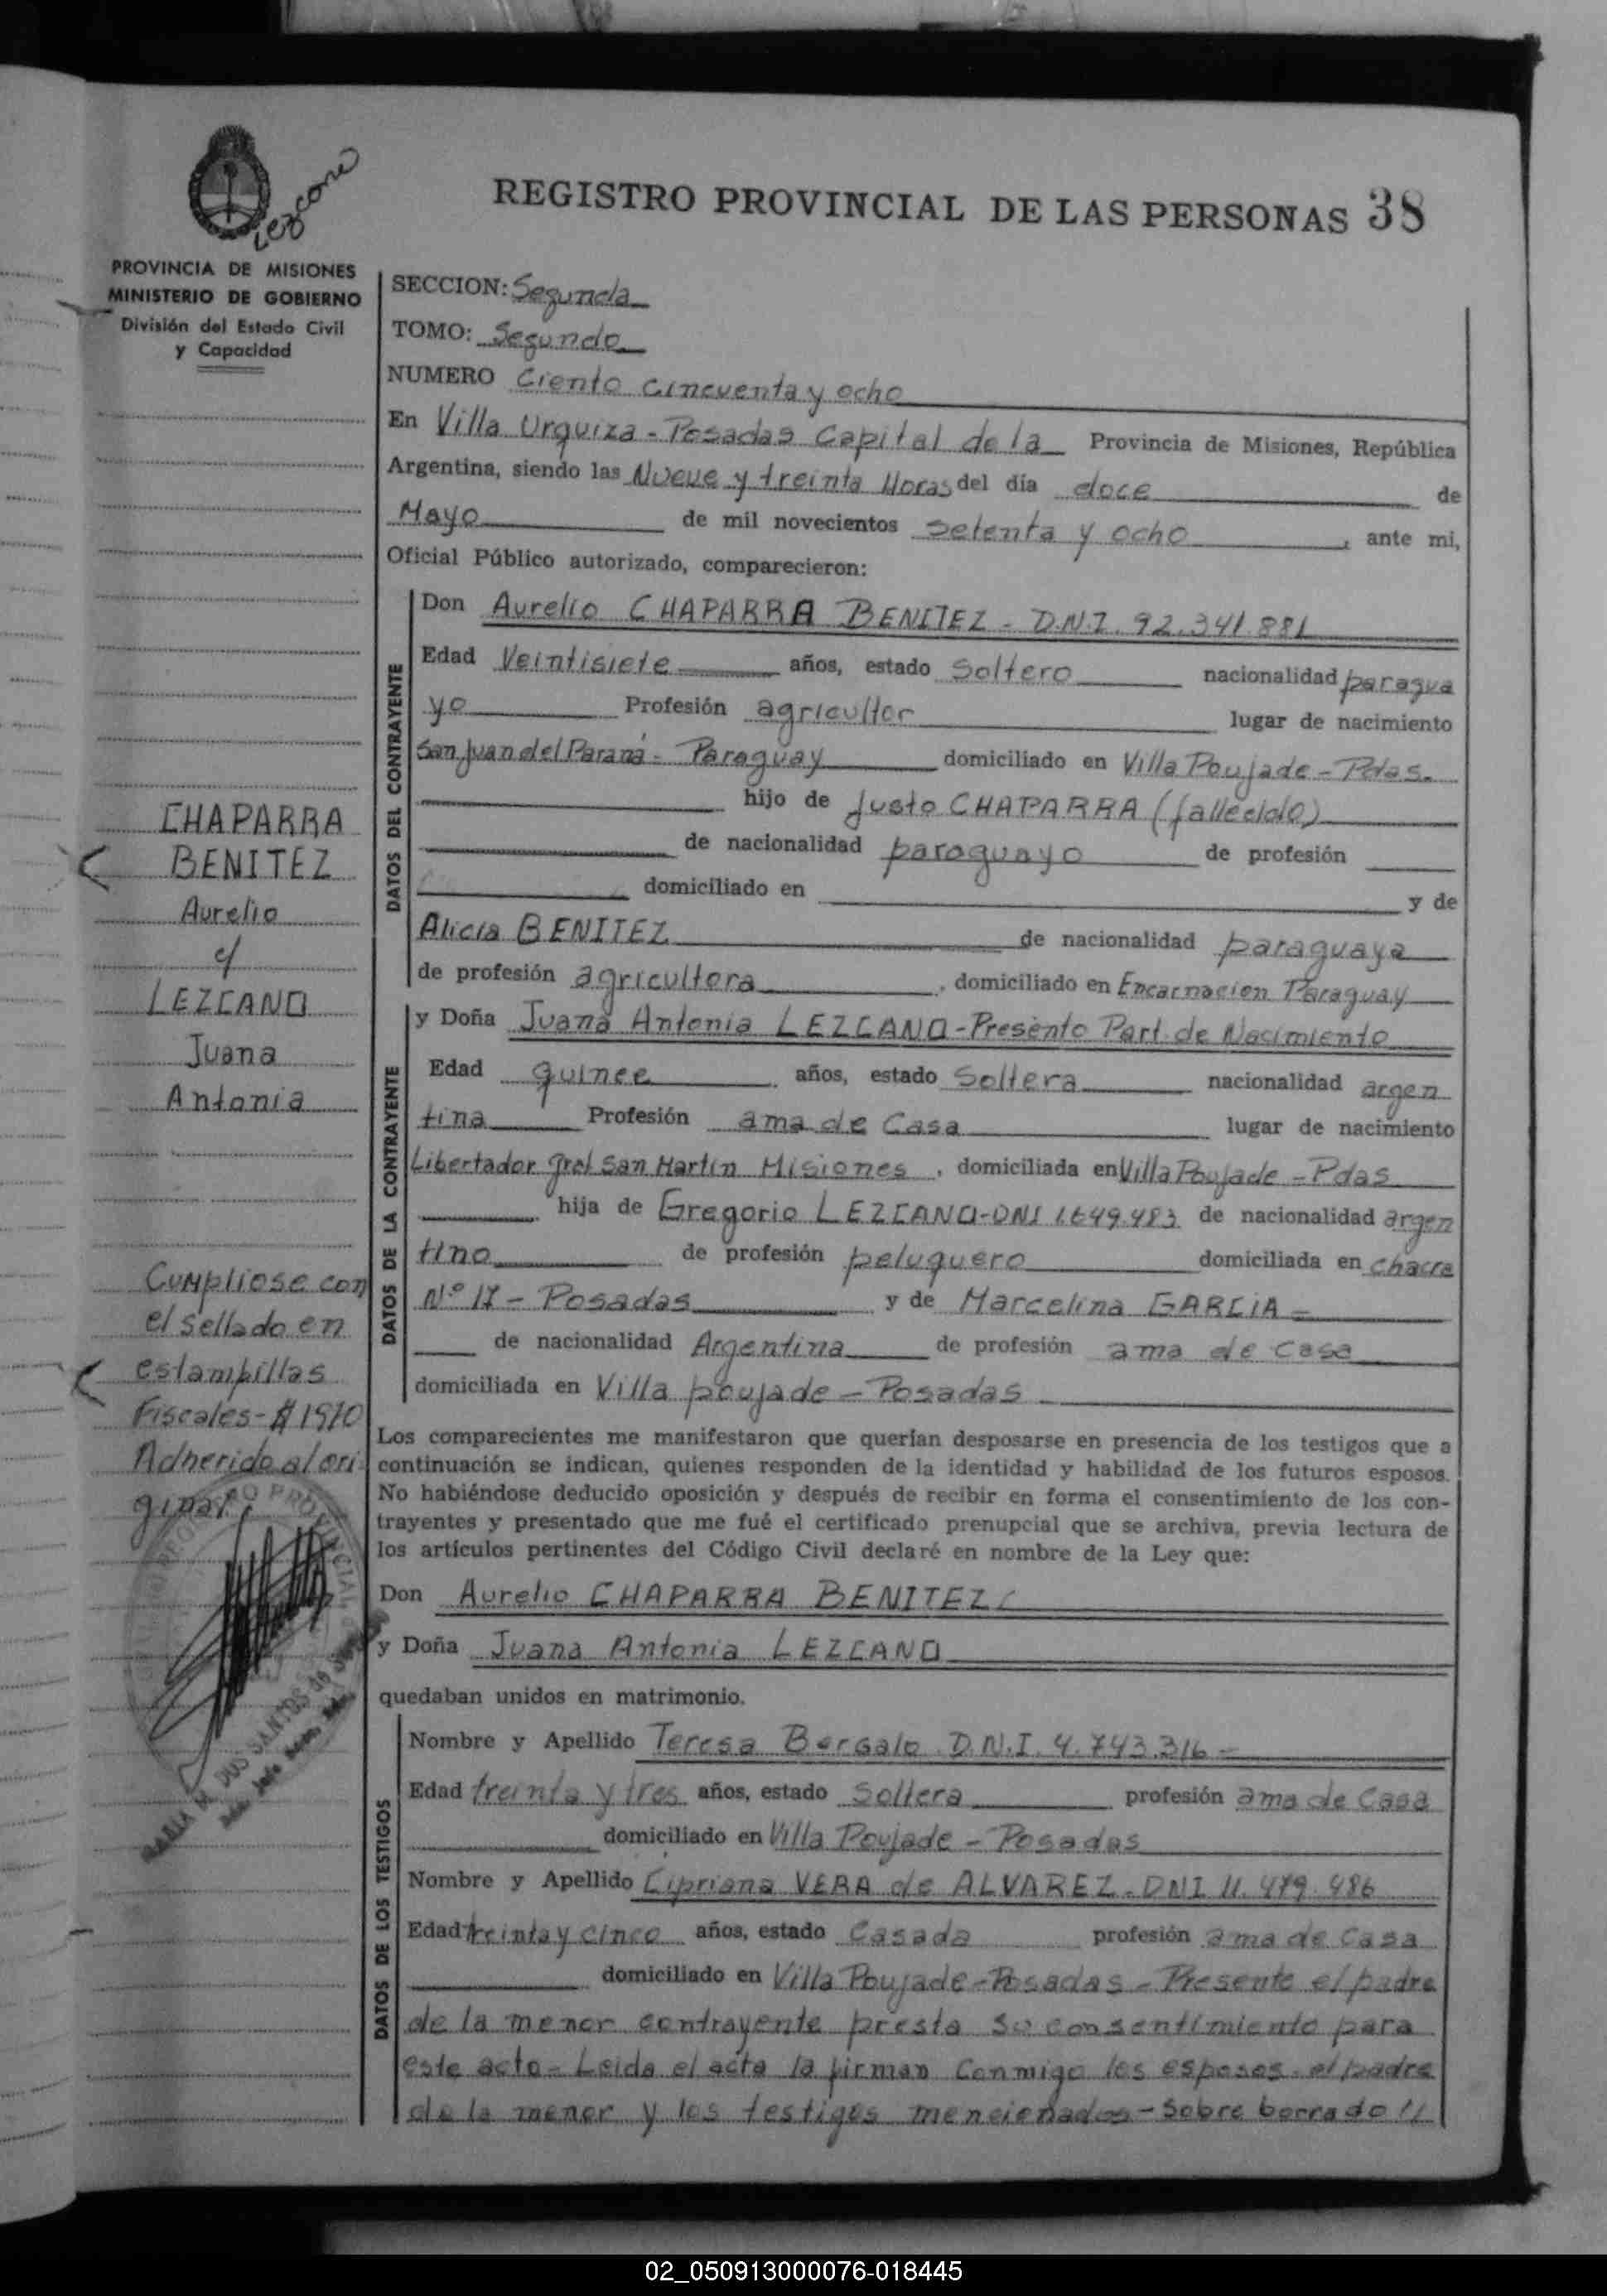 Lezcano
REGISTRO PROVINCIAL DE LAS PERSONAS 38
PROVINCIA DE MISIONES
MINISTERIO DE GOBIERNO
División del Estado Civil
y Capacidad
SECCION: Segunda
TOMO: Segundo
NUMERO Ciento cincuenta y ocho
En Villa Urquiza - Posadas Capital de la Provincia de Misiones, República
Argentina, siendo las Nueve y treinta Horas del día doce de
Mayo de mil novecientos setenta y ocho, ante mi,
Oficial Público autorizado, comparecieron:
DATOS DEL CONTRAYENTE
Don Aurelio CHAPARRA BENITEZ - D.N.I. 92.341.881
Edad Veintisiete años, estado Soltero nacionalidad paragua
yo Profesión agricultor lugar de nacimiento
San Juan del Paraná - Paraguay domiciliado en Villa Poujade - Pdas.
hijo de Justo CHAPARRA (fallecido)
de nacionalidad paraguayo de profesión
domiciliado en y de
Alicia BENITEZ de nacionalidad paraguaya
de profesión agricultora, domiciliado en Encarnacion Paraguay
DATOS DE LA CONTRAYENTE
y Doña Juana Antonia LEZCANO - Presento Part. de Nacimiento
Edad quince años, estado Soltera nacionalidad argen
tina Profesión ama de Casa lugar de nacimiento
Libertador Gral San Martín Misiones, domiciliada en Villa Poujade - Pdas
hija de Gregorio LEZCANO - DNI 1.649.483 de nacionalidad argen
tino de profesión peluquero domiciliada en chacra
Nº 17 - Posadas y de Marcelina GARCIA -
de nacionalidad Argentina de profesión ama de casa
domiciliada en Villa poujade - Posadas
Los comparecientes me manifestaron que querían desposarse en presencia de los testigos que a
continuación se indican, quienes responden de la identidad y habilidad de los futuros esposos.
No habiéndose deducido oposición y después de recibir en forma el consentimiento de los con-
trayentes y presentado que me fué el certificado prenupcial que se archiva, previa lectura de
los artículos pertinentes del Código Civil declaré en nombre de la Ley que:
Don Aurelio CHAPARRA BENITEZ
y Doña Juana Antonia LEZCANO
quedaban unidos en matrimonio.
DATOS DE LOS TESTIGOS
Nombre y Apellido Teresa Bergalo D.N.I. 4.743.316 -
Edad treinta y tres años, estado Soltera profesión ama de Casa
domiciliado en Villa Poujade - Posadas
Nombre y Apellido Cipriana VERA de ALVAREZ - DNI 11.479.486
Edad treinta y cinco años, estado Casada profesión ama de Casa
domiciliado en Villa Poujade - Posadas - Presente el padre
de la menor contrayente presta su consentimiento para
este acto - Leida el acta la firman Conmigo los esposos - el padre
de la menor y los testigos mencionados - Sobre borrado 11
CHAPARRA
BENITEZ
Aurelio
c/
LEZCANO
Juana
Antonia
Cumpliose con
el sellado en
estampillas
Fiscales - $ 1970
Adherido al ori
ginal.
REGISTRO PROVINCIAL
MARIA M. DOS SANTOS de
02_050913000076-018445